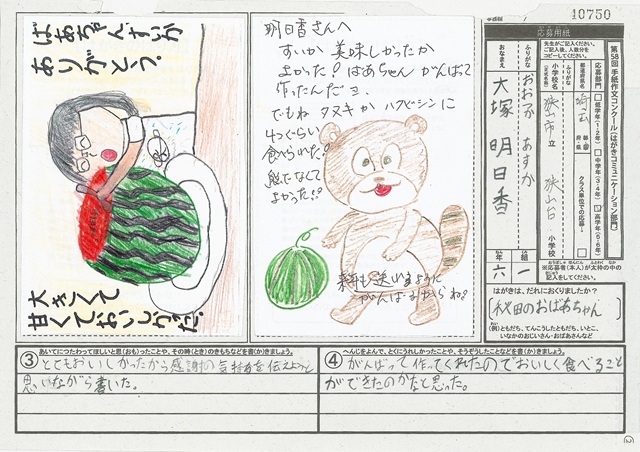 ばあちゃん、すいか
ありがとう。
大きくて
甘くておいしかった。
明日香さんへ
すいか美味しかったか
よかった!ばあちゃんがんばって
作ったんだヨ。
でもね タヌキかハクビシンに
4つぐらい
食べられた。
よかった!!
来年も送れるように
がんばるからね。
10750
応募用紙
先生がご記入ください。
ご記入後、人数分を
コピーしてください。
第58回 手紙作文コンクール(はがきコミュニケーション部門)
応募部門
低学年(1・2年)
中学年(3・4年)
高学年(5・6年)
クラス単位での応募
都道府県名
埼玉
都道府県
ふりがな
小学校名
(正式名称)
狭山市 立 狭山台 小学校
ふりがな
おおつか あすか
おなまえ
大塚 明日香
六 年 一 組
※応募者(本人)が太枠の中の
記入をしてください。
はがきは、だれにおくりましたか?
秋田のおばあちゃん
(例)ともだち、てんこうしたともだち、いとこ、
いなかのおじいさん・おばあさんなど
③ あいてにつたわってほしいと思(おも)ったことや、その時(とき)のきもちなどを書(か)きましょう。
とてもおいしかったから感謝の気持ちを伝えようと
思いながら書いた。
④ へんじをよんで、とくにうれしかったことや、そうぞうしたことなどを書(か)きましょう。
がんばって作ってくれたのでおいしく食べること
ができたのかなと思った。